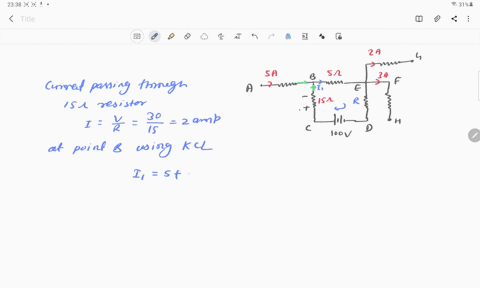 23:38
31%
Title
Current passing through
15Ω resistor
I = V/R = 30/15 = 2 amp
at point B using KCL
I₁ = 5 +
2A
G
5A
B
5Ω
3A
A
I₁
E
F
-
15Ω
R
+
C
100V
D
H